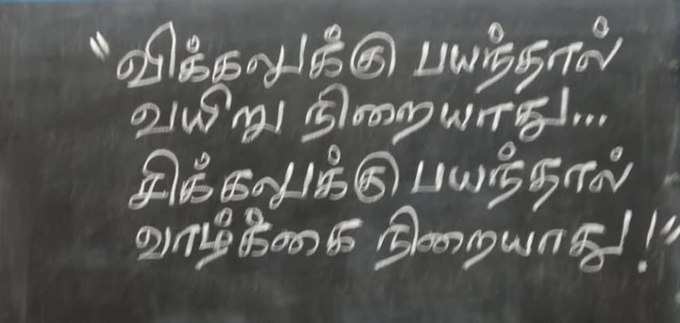 "விக்கலுக்கு பயந்தால்
வயிறு நிறையாது...
சிக்கலுக்கு பயந்தால்
வாழ்க்கை நிறையாது!"